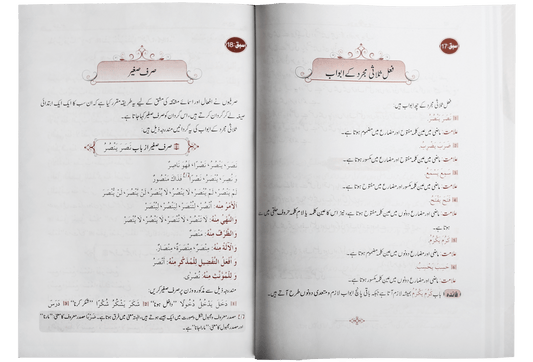 سبق: 17
فعل ثلاثی مجرد کے ابواب
فعل ثلاثی مجرد کے چھ ابواب ہیں:
نَصَرَ يَنْصُرُ
علامت: ماضی میں عین کلمہ مفتوح اور مضارع میں مضموم ہوتا ہے۔
ضَرَبَ يَضْرِبُ
علامت: ماضی میں عین کلمہ مفتوح اور مضارع میں مکسور ہوتا ہے۔
سَمِعَ يَسْمَعُ
علامت: ماضی میں عین کلمہ مکسور اور مضارع میں مفتوح ہوتا ہے۔
فَتَحَ يَفْتَحُ
علامت: ماضی اور مضارع دونوں میں عین کلمہ مفتوح ہوتا ہے، نیز اس کا عین کلمہ یا لام کلمہ حروف حلقی میں سے
ہوتا ہے۔
كَرُمَ يَكْرُمُ
علامت: ماضی اور مضارع دونوں میں عین کلمہ مضموم ہوتا ہے۔
حَسِبَ يَحْسِبُ
علامت: ماضی اور مضارع دونوں میں عین کلمہ مکسور ہوتا ہے۔
باب كَرُمَ يَكْرُمُ ہمیشہ لازم آتا ہے جبکہ باقی پانچ ابواب لازم و متعدی دونوں طرح آتے ہیں۔
سبق: 18
صرف صغیر
صرفیوں نے افعال اور اسمائے مشتقہ کی مشق کے لیے یہ طریقہ مقرر کیا ہے کہ ان سب کا ایک ایک ابتدائی
صیغہ لے کر گردان کرتے ہیں، اس گردان کو صرف صغیر کہا جاتا ہے۔
ثلاثی مجرد کے ابواب کی یہ گردانیں مندرجہ ذیل ہیں:
صرف صغیر از باب نَصَرَ يَنْصُرُ
نَصَرَ، يَنْصُرُ، نَصْرًا، فَهُوَ نَاصِرٌ
وَ نُصِرَ، يُنْصَرُ، نَصْرًا، فَذَاكَ مَنْصُورٌ
لَمْ يَنْصُرْ، لَمْ يُنْصَرْ، لَا يَنْصُرُ، لَا يُنْصَرُ، لَنْ يَنْصُرَ، لَنْ يُنْصَرَ
اَلْأَمْرُ مِنْهُ: اُنْصُرْ، لِتُنْصَرْ، لِيَنْصُرْ، لِيُنْصَرْ
وَالنَّهْيُ مِنْهُ: لَا تَنْصُرْ، لَا تُنْصَرْ، لَا يَنْصُرْ، لَا يُنْصَرْ
وَالظَّرْفُ مِنْهُ: مَنْصَرٌ
وَالْآلَةُ مِنْهُ: مِنْصَرٌ، مِنْصَرَةٌ، مِنْصَارٌ
وَ أَفْعَلُ التَّفْضِيلِ لِلْمُذَكَّرِ مِنْهُ: أَنْصَرُ
وَ لِلْمُؤَنَّثِ مِنْهُ: نُصْرٰى
مندرجہ ذیل سے مذکورہ وزن پر صرف صغیر کریں:
دَخَلَ يَدْخُلُ دُخُولًا "داخل ہونا" شَكَرَ يَشْكُرُ شُكْرًا "شکر کرنا" دَرَسَ